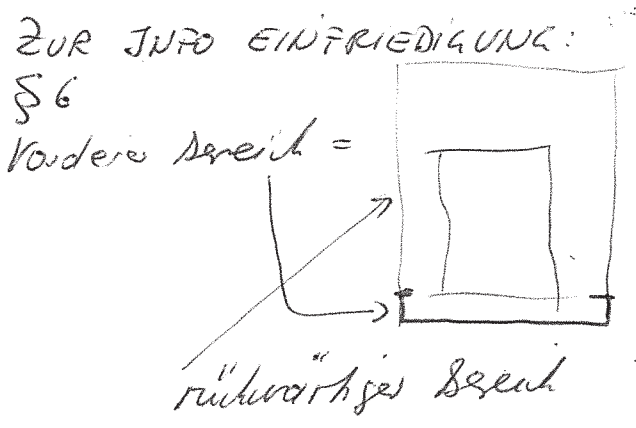 ZUR INFO EINFRIEDIGUNG:
§ 6
Vorderer Bereich =
rückwärtiger Bereich